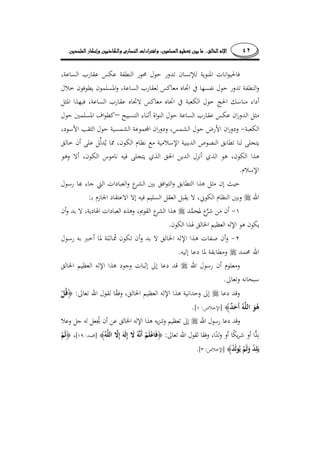 ٤٢ الإله الخالق.. ما بين تعظيم المسلمين، وافتراءات النصارى والملحدين، وإنكار الملحدين
فالحيوانات المنوية للإنسان تدور حول محور النطفة عكس عقارب الساعة،
والنطفة تدور حول نفسها في اتجاه معاكس لعقارب الساعة، والمسلمون يطوفون خلال
أداء مناسك الحج حول الكعبة في اتجاه معاكس لاتجاه عقارب الساعة، فبهذا المثل
مثل الدوران عكس عقارب الساعة حول النواة أثناء التسبيح –كطواف المسلمين حول
الكعبة- ودوران الأرض حول الشمس، ودوران المجموعة الشمسية حول الثقب الأسود،
يتجلى لنا تطابق النصوص الدينية الإسلامية مع نظام الكون، مما يُدلِّل على أن خالق
هذا الكون، هو الذي أنزل الدين الحق الذي يتجلى فيه ناموس الكون، ألا وهو
الإسلام.
حيث إن مثل هذا التطابق والتوافق بين الشرع والعبادات التي جاء بها رسول
الله ﷺ وبين النظام الكوني، لا يقبل العقل السليم فيه إلا الاعتقاد الجازم بـ:
١- أن مَن شَرَّع لمُحمَّدٍ ﷺ هذا الشرع القويم، وهذه العبادات الهادية، لا بد وأن
يكون هو الإله العظيم الخالق لهذا الكون.
٢- وأن صفات هذا الإله الخالق لا بد وأن تكون مُماثِلة لما أخبر به رسول
الله محمد ﷺ ومطابقة لما دعا إليه.
ومعلوم أن رسول الله ﷺ قد دعا إلى إثبات وجود هذا الإله العظيم الخالق
سبحانه وتعالى.
وقد دعا ﷺ إلى وحدانية هذا الإله العظيم الخالق، وفقًا لقول الله تعالى: ﴿قُلْ
هُوَ اللَّهُ أَحَدٌ﴾ [الإخلاص: ١].
وقد دعا رسول الله ﷺ إلى تعظيم وتنزيه هذا الإله الخالق عن أن يُجعل له جل وعلا
نِدًّا أو شريكًا أو ولدًا، وفقا لقول الله تعالى: ﴿فَاعْلَمْ أَنَّهُ لَا إِلَهَ إِلَّا اللَّهُ﴾ [محمد: ١٩]، ﴿لَمْ
يَلِدْ وَلَمْ يُولَدْ﴾ [الإخلاص: ٣].